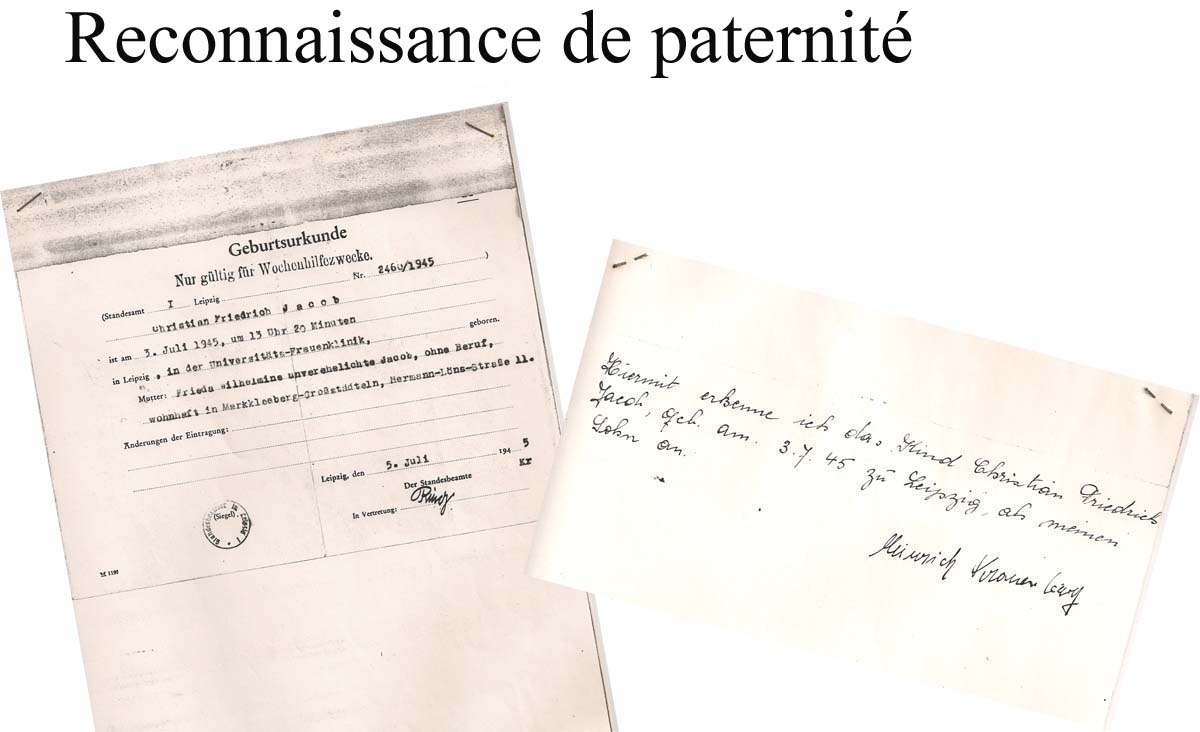 Reconnaissance de paternité
Geburtsurkunde
Nur gültig für Wochenhilfezwecke.
(Standesamt I Leipzig Nr. 2460/1945 )
Christian Friedrich Jacob
ist am 3. Juli 1945, um 13 Uhr 20 Minuten
in Leipzig , in der Universitäts-Frauenklinik, geboren.
Mutter: Frieda Wilhelmine unverehelichte Jacob, ohne Beruf,
wohnhaft in Markkleeberg-Großstädteln, Hermann-Löns-Straße 11.
Änderungen der Eintragung:
Leipzig, den 5. Juli 194 5
Der Standesbeamte
Kr
In Vertretung:
(Siegel)
M 1192
Hiermit erkenne ich das Kind Christian Friedrich
Jacob, geb. am. 3.7.45 zu Leipzig, als meinen
Sohn an.
Heinrich